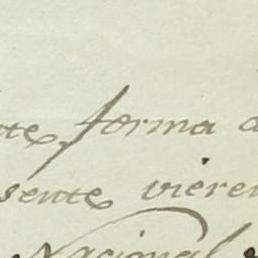 forma
sente vieren
Nacional